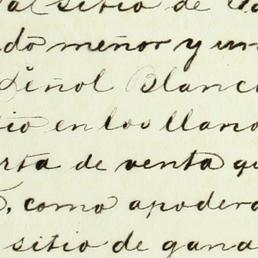 al sitio de la
do menor y un
Señol Blanc
io en los llano
rta de venta qu
, como apodera
sitio de gana